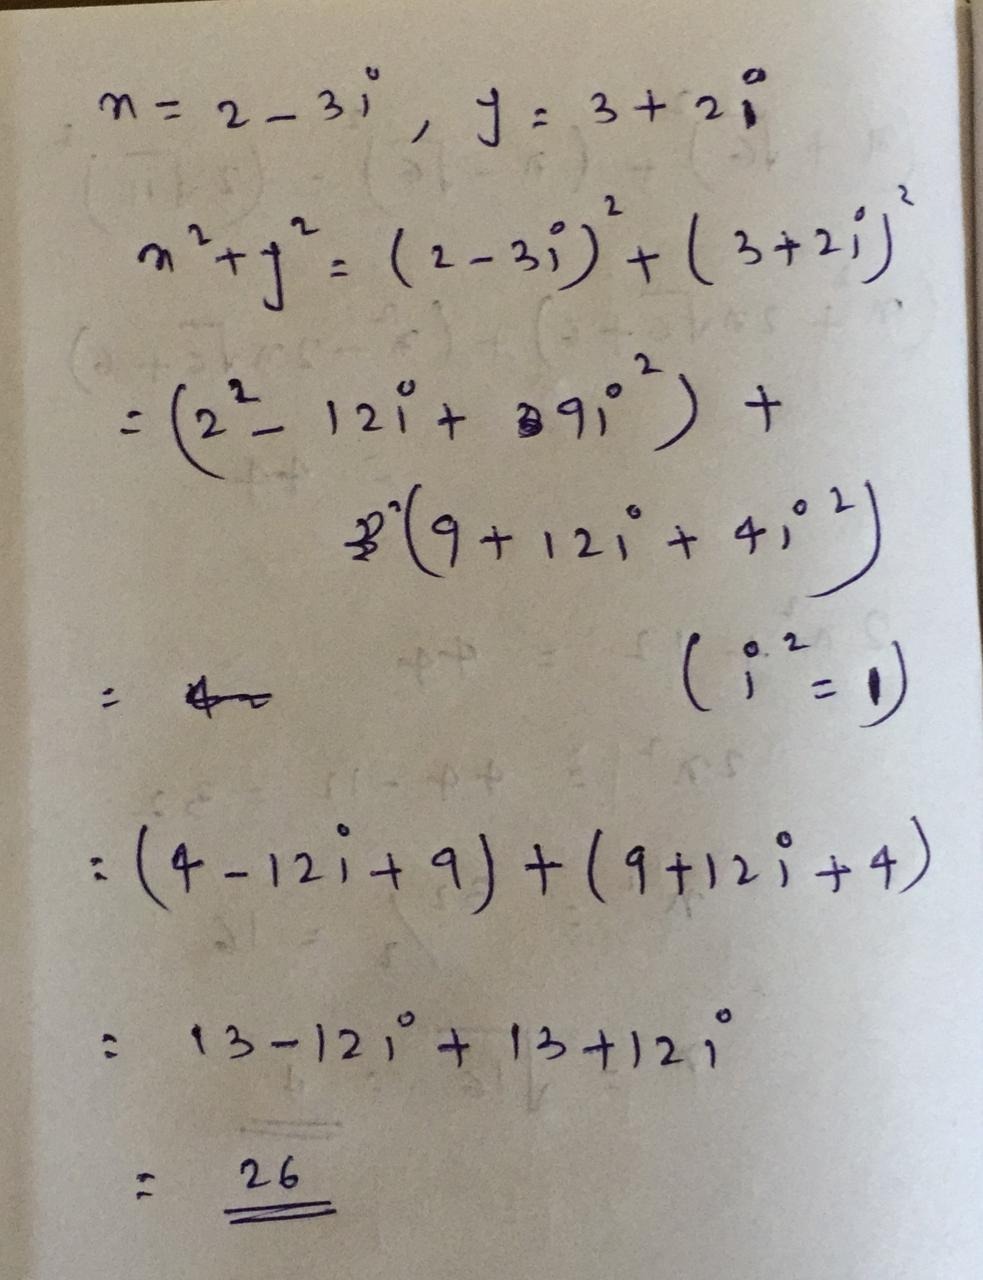 x = 2 - 3i , y = 3 + 2i
x² + y² = (2 - 3i)² + (3 + 2i)²
= (2² - 12i + 9i²) +
(9 + 12i + 4i²)
= (i² = 1)
= (4 - 12i + 9) + (9 + 12i + 4)
= 13 - 12i + 13 + 12i
= 26